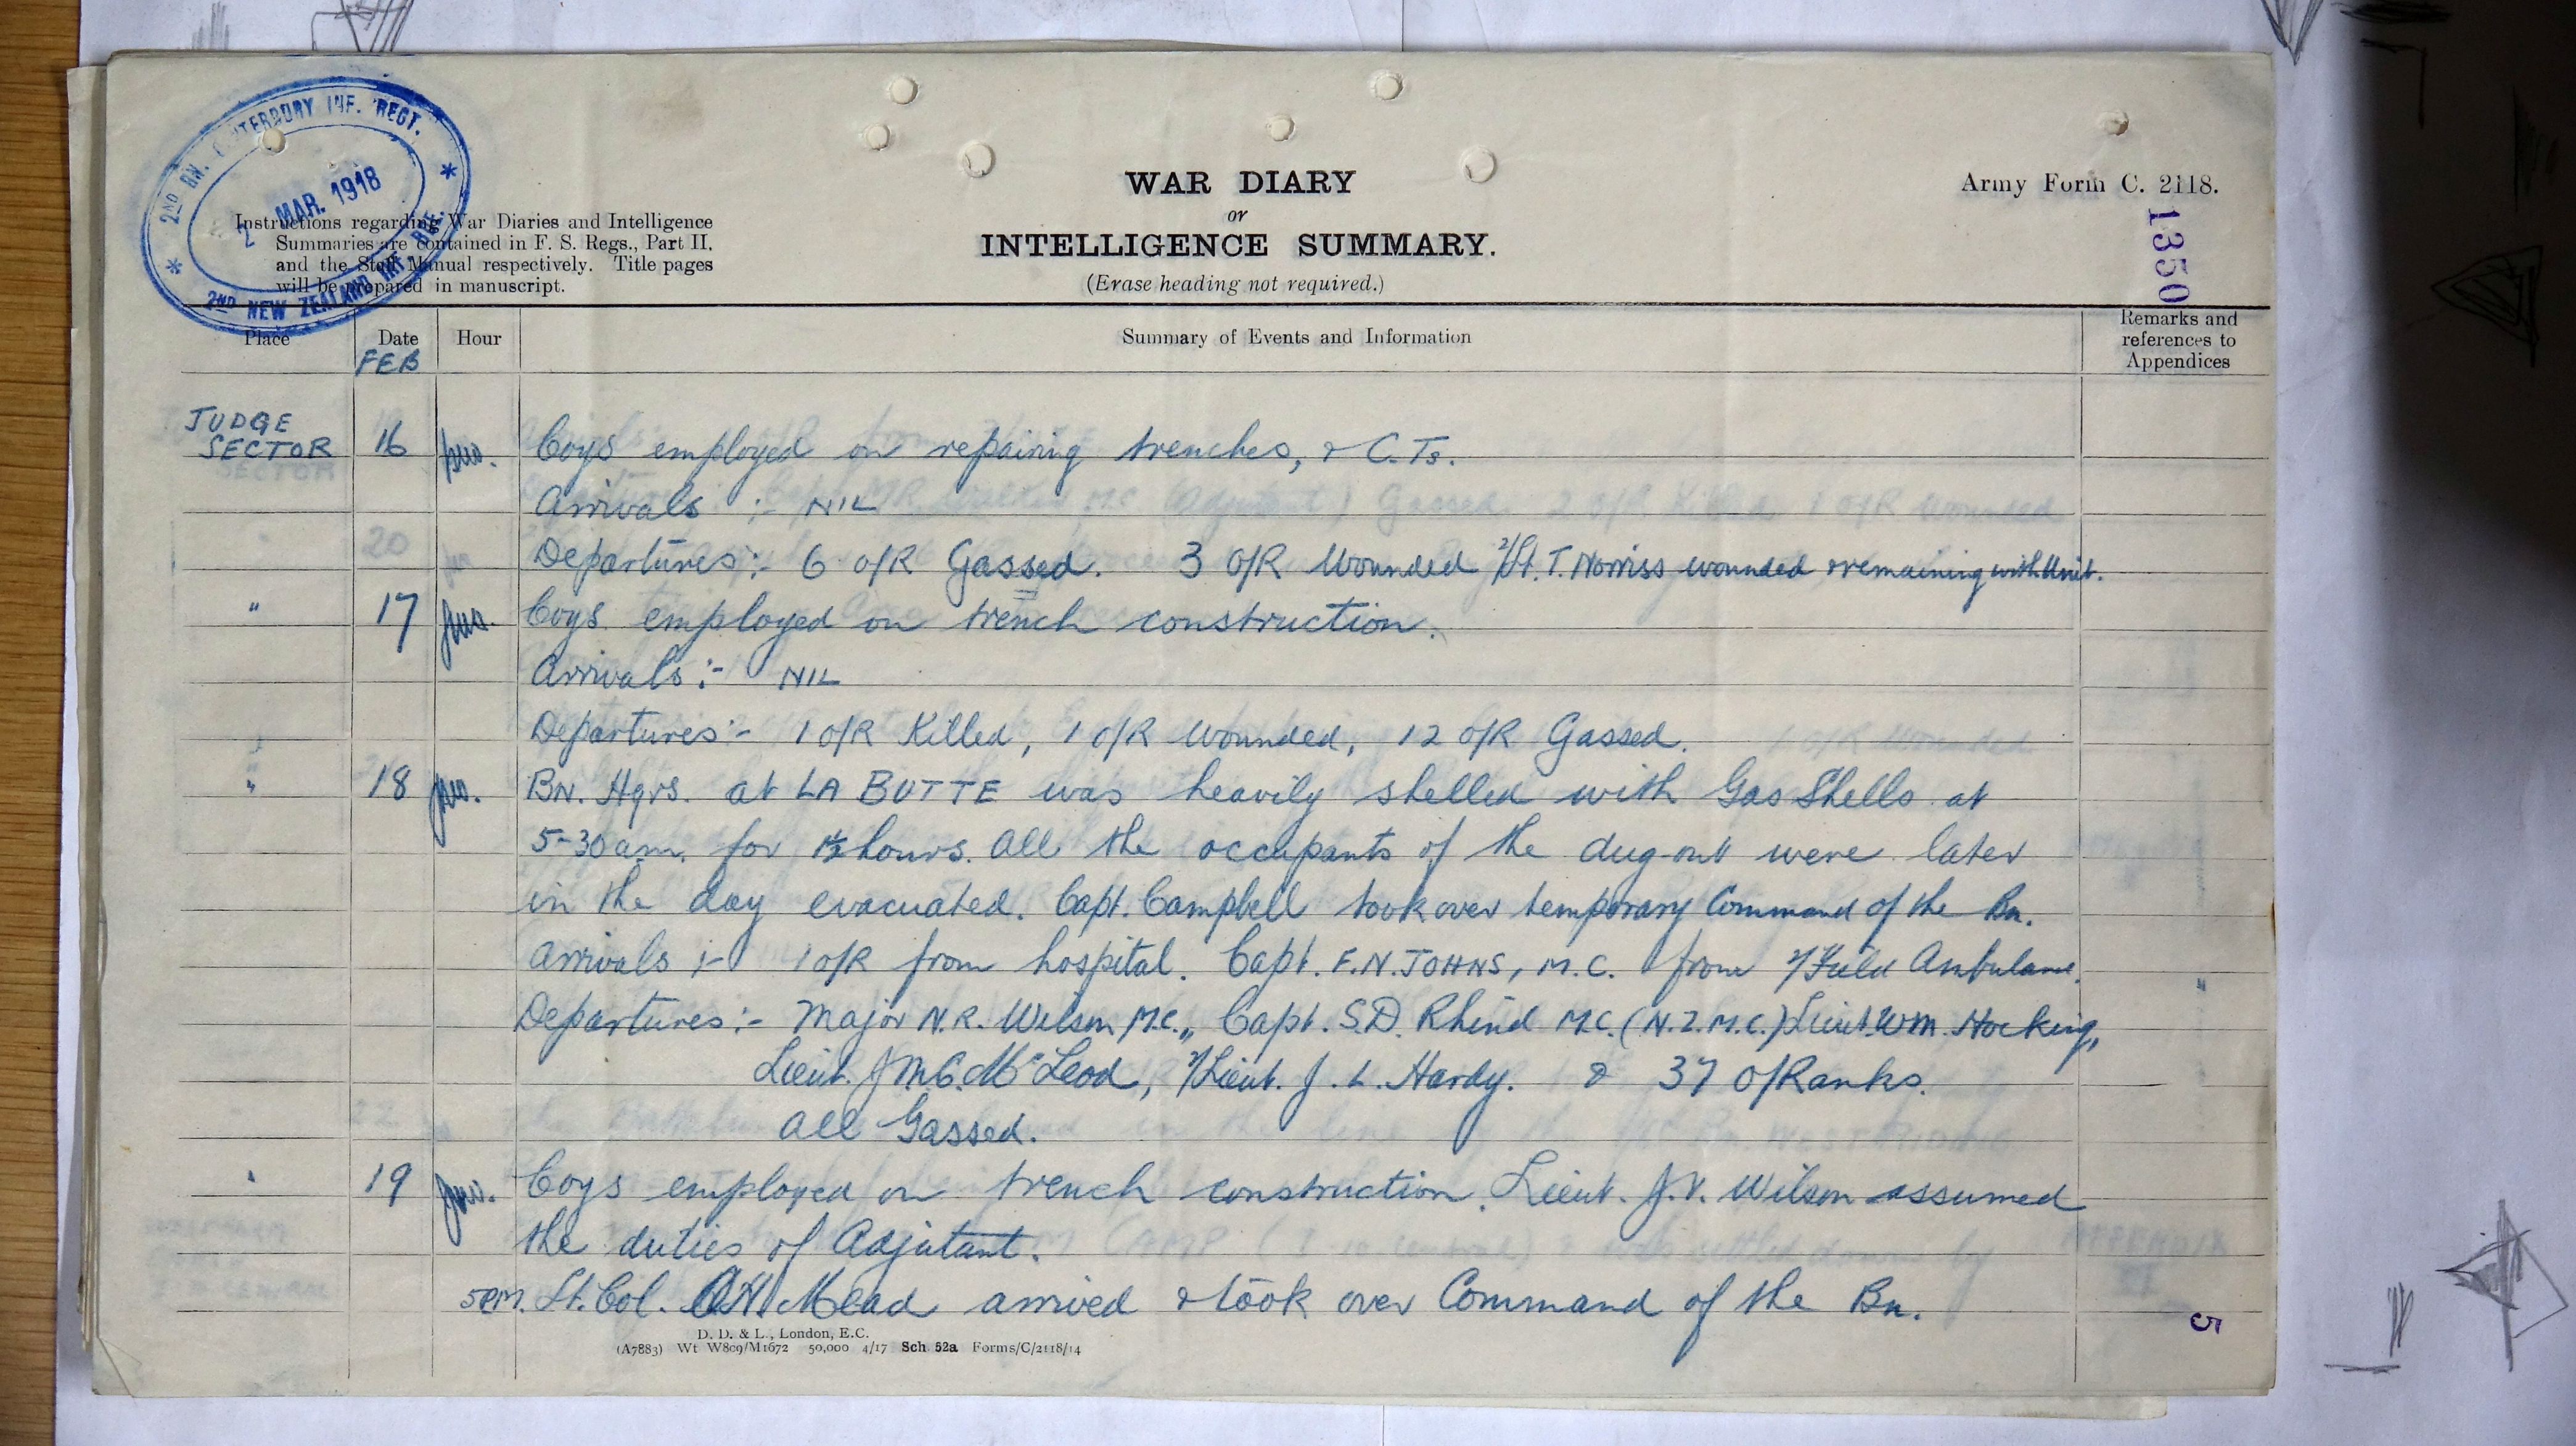 2ND BN. CANTERBURY INF. REGT.
2 MAR. 1918
2ND NEW ZEALAND INF. BDE.
Instructions regarding War Diaries and Intelligence
Summaries are contained in F. S. Regs., Part II,
and the Staff Manual respectively. Title pages
will be prepared in manuscript.
WAR DIARY
or
INTELLIGENCE SUMMARY.
(Erase heading not required.)
Army Form C. 2118.
1350
Place Date Hour Summary of Events and Information Remarks and references to Appendices
FEB
JUDGE
SECTOR 16 Coys employed on repairing trenches, & C.Ts.
Arrivals :- NIL
Departures :- 6 O/R Gassed. 3 O/R Wounded 2/Lt. T. Norriss wounded & remaining with Unit.
" 17 Coys employed on trench construction.
Arrivals :- NIL
Departures :- 1 O/R Killed, 1 O/R Wounded, 12 O/R Gassed.
" 18 BN. Hqrs. at LA BUTTE was heavily shelled with Gas Shells at
5-30 am. for 1½ hours. All the occupants of the dug-out were later
in the day evacuated. Capt. Campbell took over temporary Command of the Bn.
Arrivals :- 1 O/R from hospital. Capt. F.N. JOHNS, M.C. from Field Ambulance.
Departures :- Major N.R. Wilson M.C., Capt. S.D. Rhind M.C. (N.Z.M.C.) Lieut. W.M. Hocking,
Lieut. J.M.C. McLeod, 2/Lieut. J. L. Hardy. & 37 O/Ranks.
All Gassed.
" 19 Coys employed on trench construction. Lieut. J.V. Wilson assumed
the duties of Adjutant.
5PM. Lt. Col. O.H. Mead arrived & took over Command of the Bn.
5
D. D. & L., London, E.C.
(A7883) Wt W809/M1672 50,000 4/17 Sch 52a Forms/C/2118/14